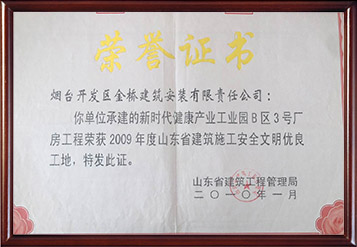 荣誉证书
烟台开发区金桥建筑安装有限责任公司：
你单位承建的新时代健康产业工业园B区3号厂
房工程荣获2009年度山东省建筑施工安全文明优良
工地，特发此证。
山东省建筑工程管理局
二〇一〇年一月